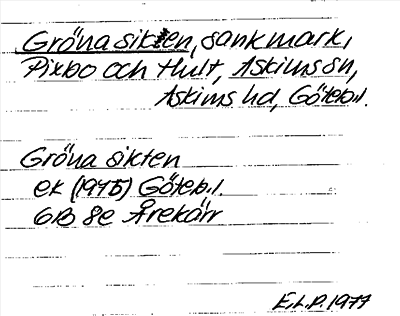 Gröna sikten, sankmark,
Pixbo och Hult, Askims sn,
Askims hd, Göteb.l.
Gröna sikten
ek (1975) Göteb.l.
6B 8e Årekärr
E.L.P. 1977